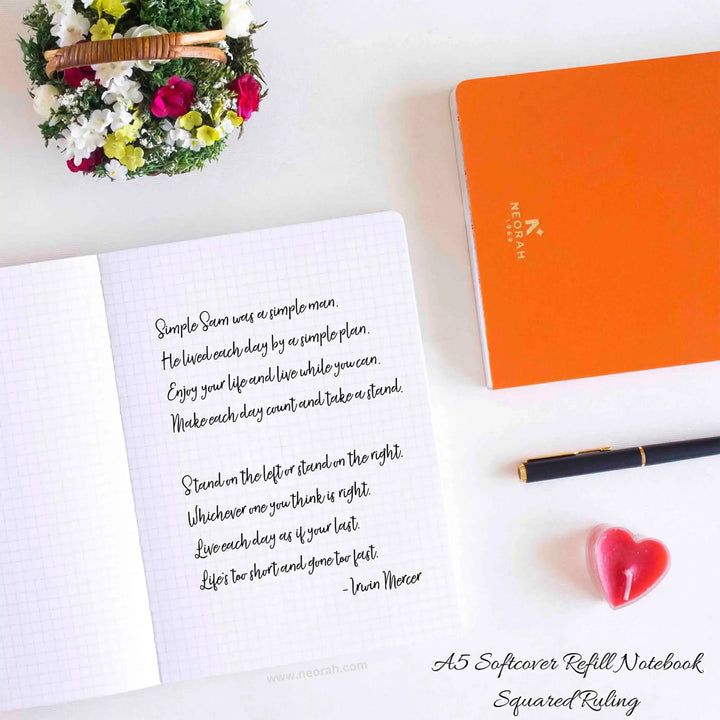 NEORAH
1969
Simple Sam was a simple man.
He lived each day by a simple plan.
Enjoy your life and live while you can.
Make each day count and take a stand.
Stand on the left or stand on the right.
Whichever one you think is right.
Live each day as if your last.
Life's too short and gone too fast.
-Irwin Mercer
www.neorah.com
A5 Softcover Refill Notebook
Squared Ruling